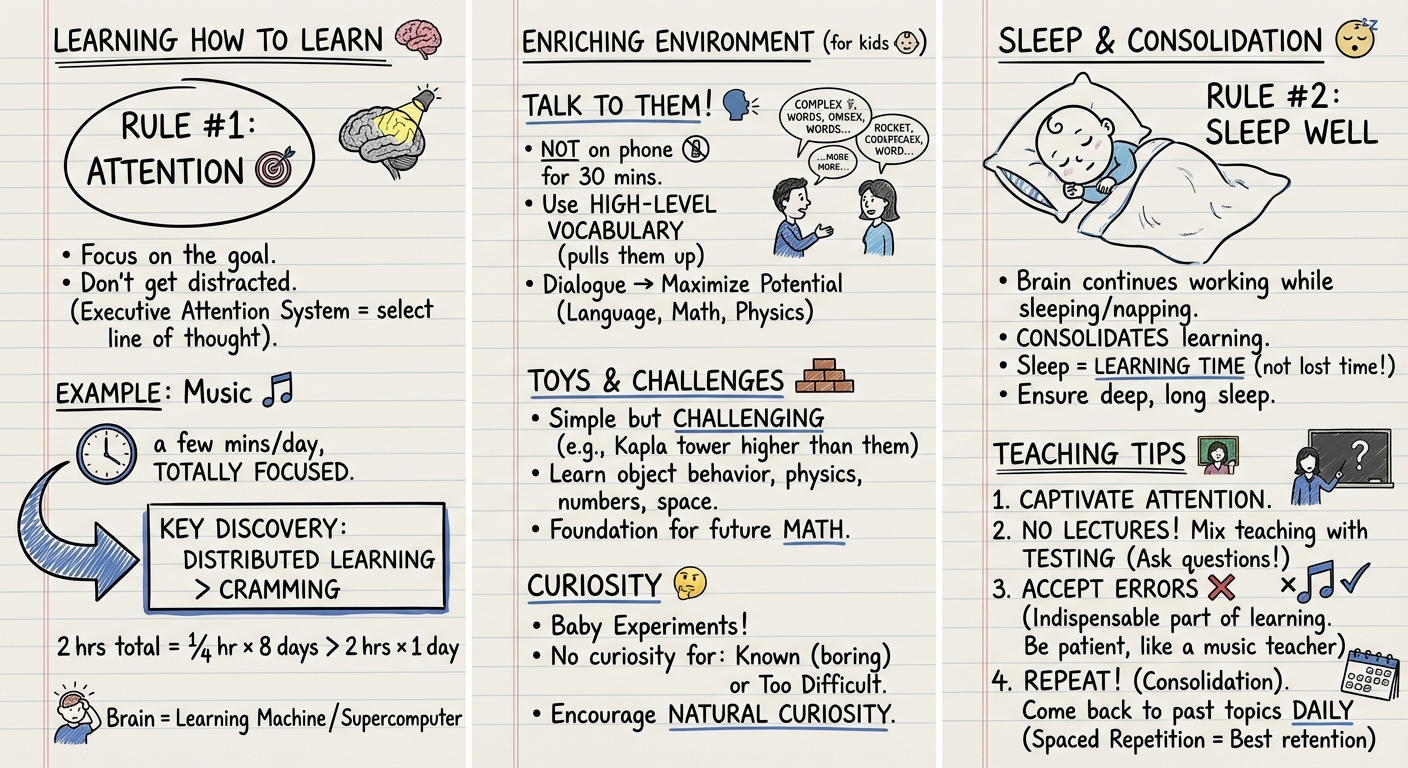 LEARNING HOW TO LEARN
RULE #1:
ATTENTION
• Focus on the goal.
• Don't get distracted.
(Executive Attention System = select
line of thought).
EXAMPLE: Music
a few mins/day,
TOTALLY FOCUSED.
KEY DISCOVERY:
DISTRIBUTED LEARNING
> CRAMMING
2 hrs total = ¼ hr × 8 days > 2 hrs × 1 day
Brain = Learning Machine/Supercomputer
ENRICHING ENVIRONMENT (for kids)
TALK TO THEM!
COMPLEX
WORDS, OMSEX,
WORDS...
ROCKET,
WORD...
...MORE
MORE...
• NOT on phone
for 30 mins.
• Use HIGH-LEVEL
VOCABULARY
(pulls them up)
• Dialogue → Maximize Potential
(Language, Math, Physics)
TOYS & CHALLENGES
• Simple but CHALLENGING
(e.g., Kapla tower higher than them)
• Learn object behavior, physics,
numbers, space.
• Foundation for future MATH.
CURIOSITY
• Baby Experiments!
• No curiosity for: Known (boring)
or Too Difficult.
• Encourage NATURAL CURIOSITY.
SLEEP & CONSOLIDATION
zZ
RULE #2:
SLEEP WELL
• Brain continues working while
sleeping/napping.
• CONSOLIDATES learning.
• Sleep = LEARNING TIME (not lost time!)
• Ensure deep, long sleep.
TEACHING TIPS
?
1. CAPTIVATE ATTENTION.
2. NO LECTURES! Mix teaching with
TESTING (Ask questions!)
3. ACCEPT ERRORS
(Indispensable part of learning.
Be patient, like a music teacher)
4. REPEAT! (Consolidation).
Come back to past topics DAILY
(Spaced Repetition = Best retention)